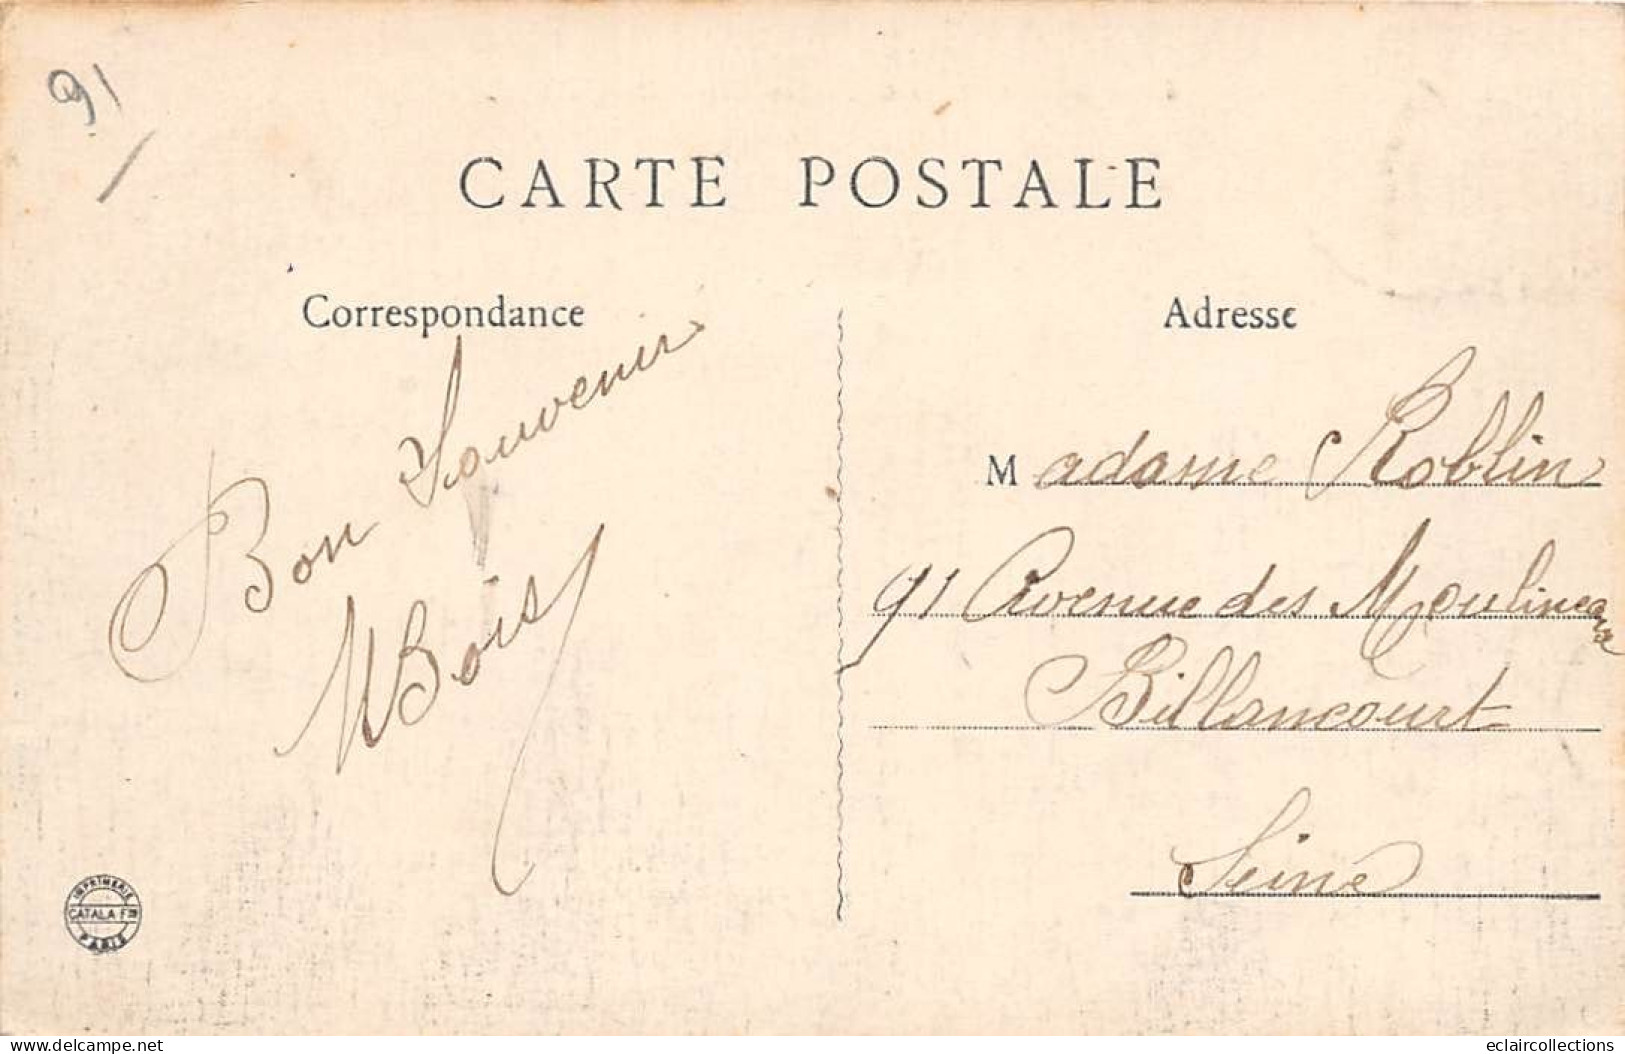 91
CARTE POSTALE
Correspondance
Adresse
Bon Souvenir
MBois
Madame Roblin
91 Avenue des Moulineaux
Billancourt
Seine
IMPRIMERIE
CATALA Fres
PARIS
www.delcampe.net
eclaircollections